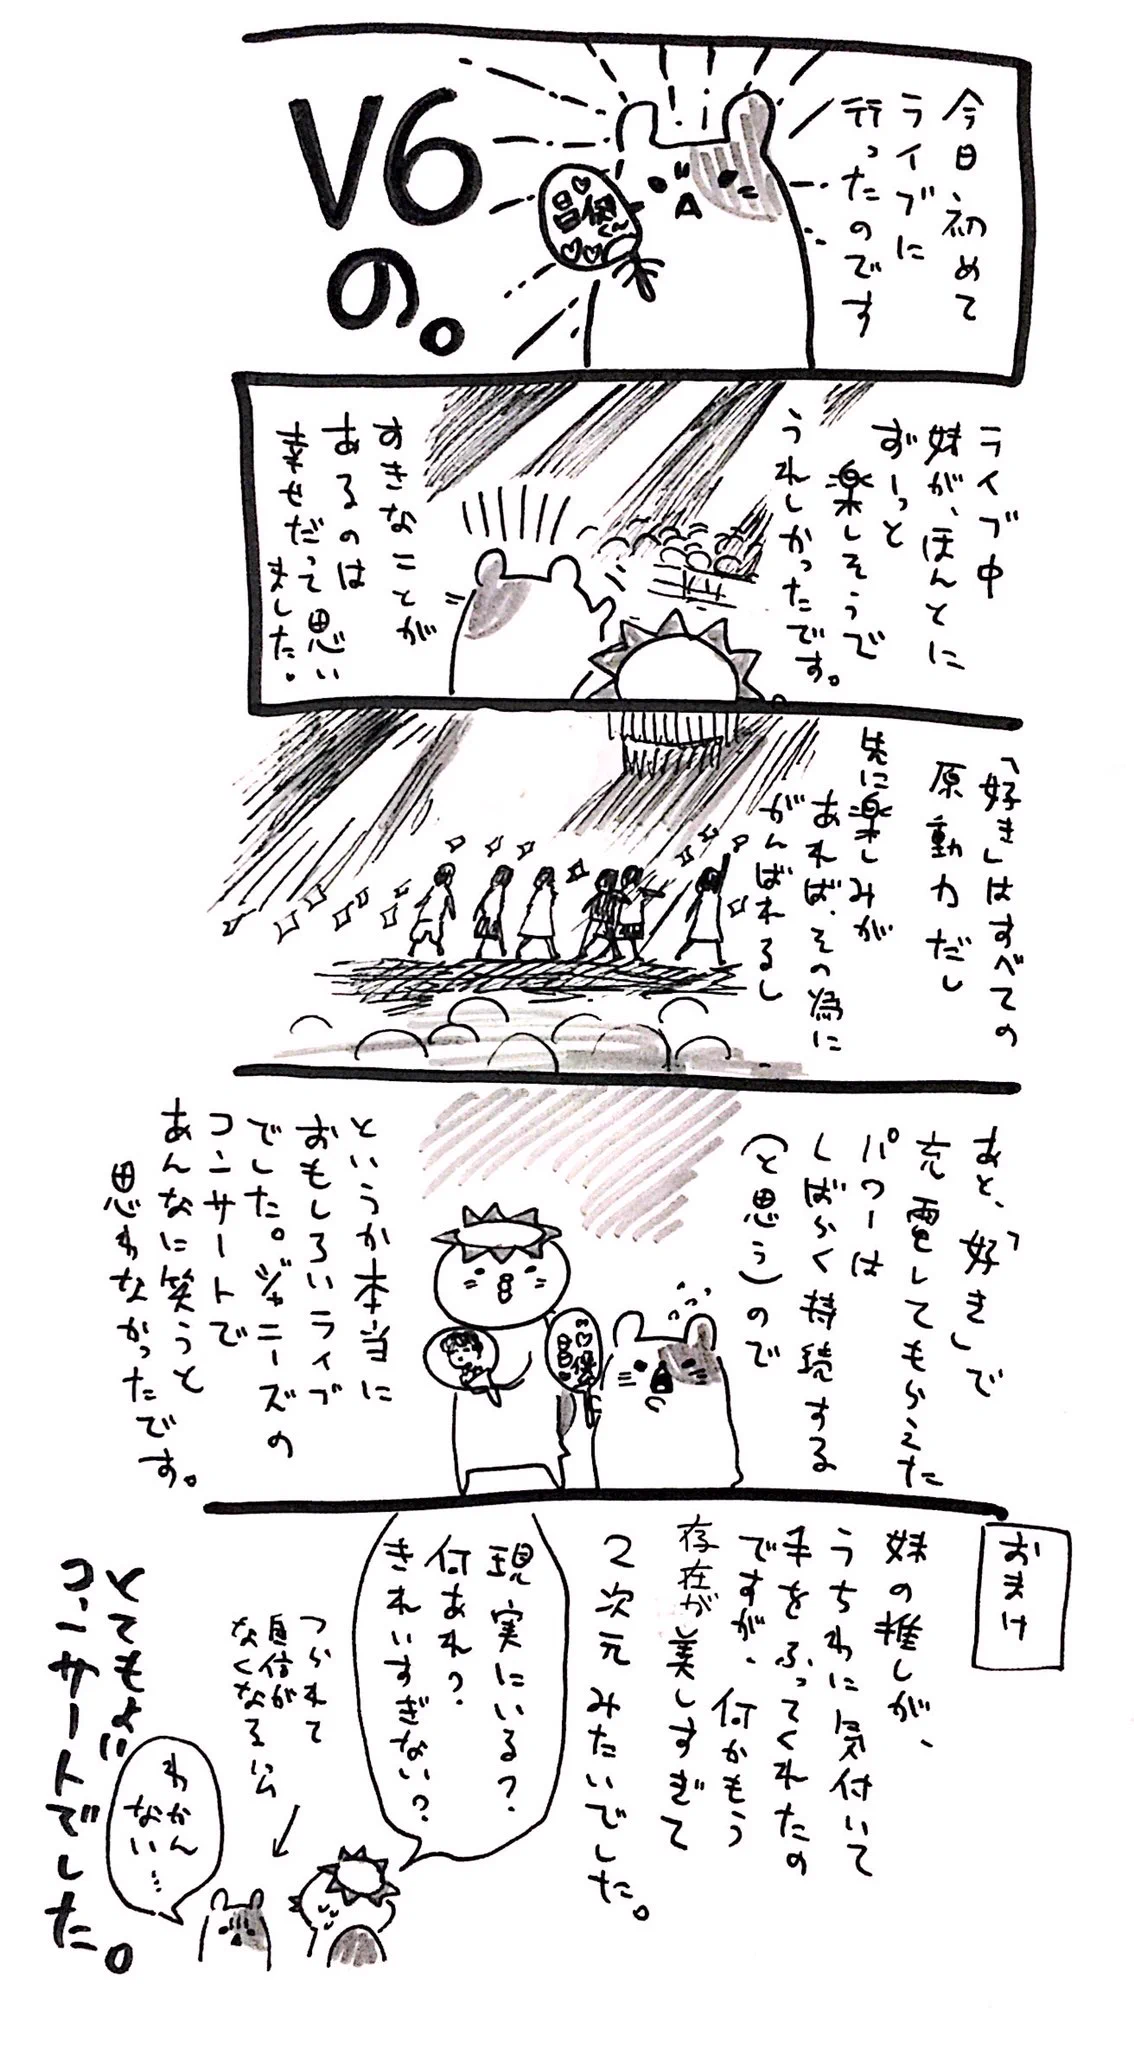 今日、初めて
ライブに
行ったのです
昌保
く〜
V6
の。
ライブ中
妹が、ほんとに
ずーっと
楽しそうで
うれしかったです。
すきなことが
あるのは
幸せだって思い
ました。
「好き」はすべての
原動力だし
先に楽しみが
あれば、その為に
がんばれるし
あと、「好き」で
充電してもらえた
パワーは
しばらく持続する
(と思う)ので
昌保
というか本当に
おもしろいライブ
でした。ジャニーズの
コンサートで
あんなに笑うと
思わなかったです。
おまけ
妹の推しが、
うちわに気付いて
手をふってくれたの
ですが、何かもう
存在が美しすぎて
2次元みたいでした。
現実にいる?
何あれ?
きれいすぎない?
つられて
自信が
なくなる
わかん
ない…
とてもよい
コンサートでした。